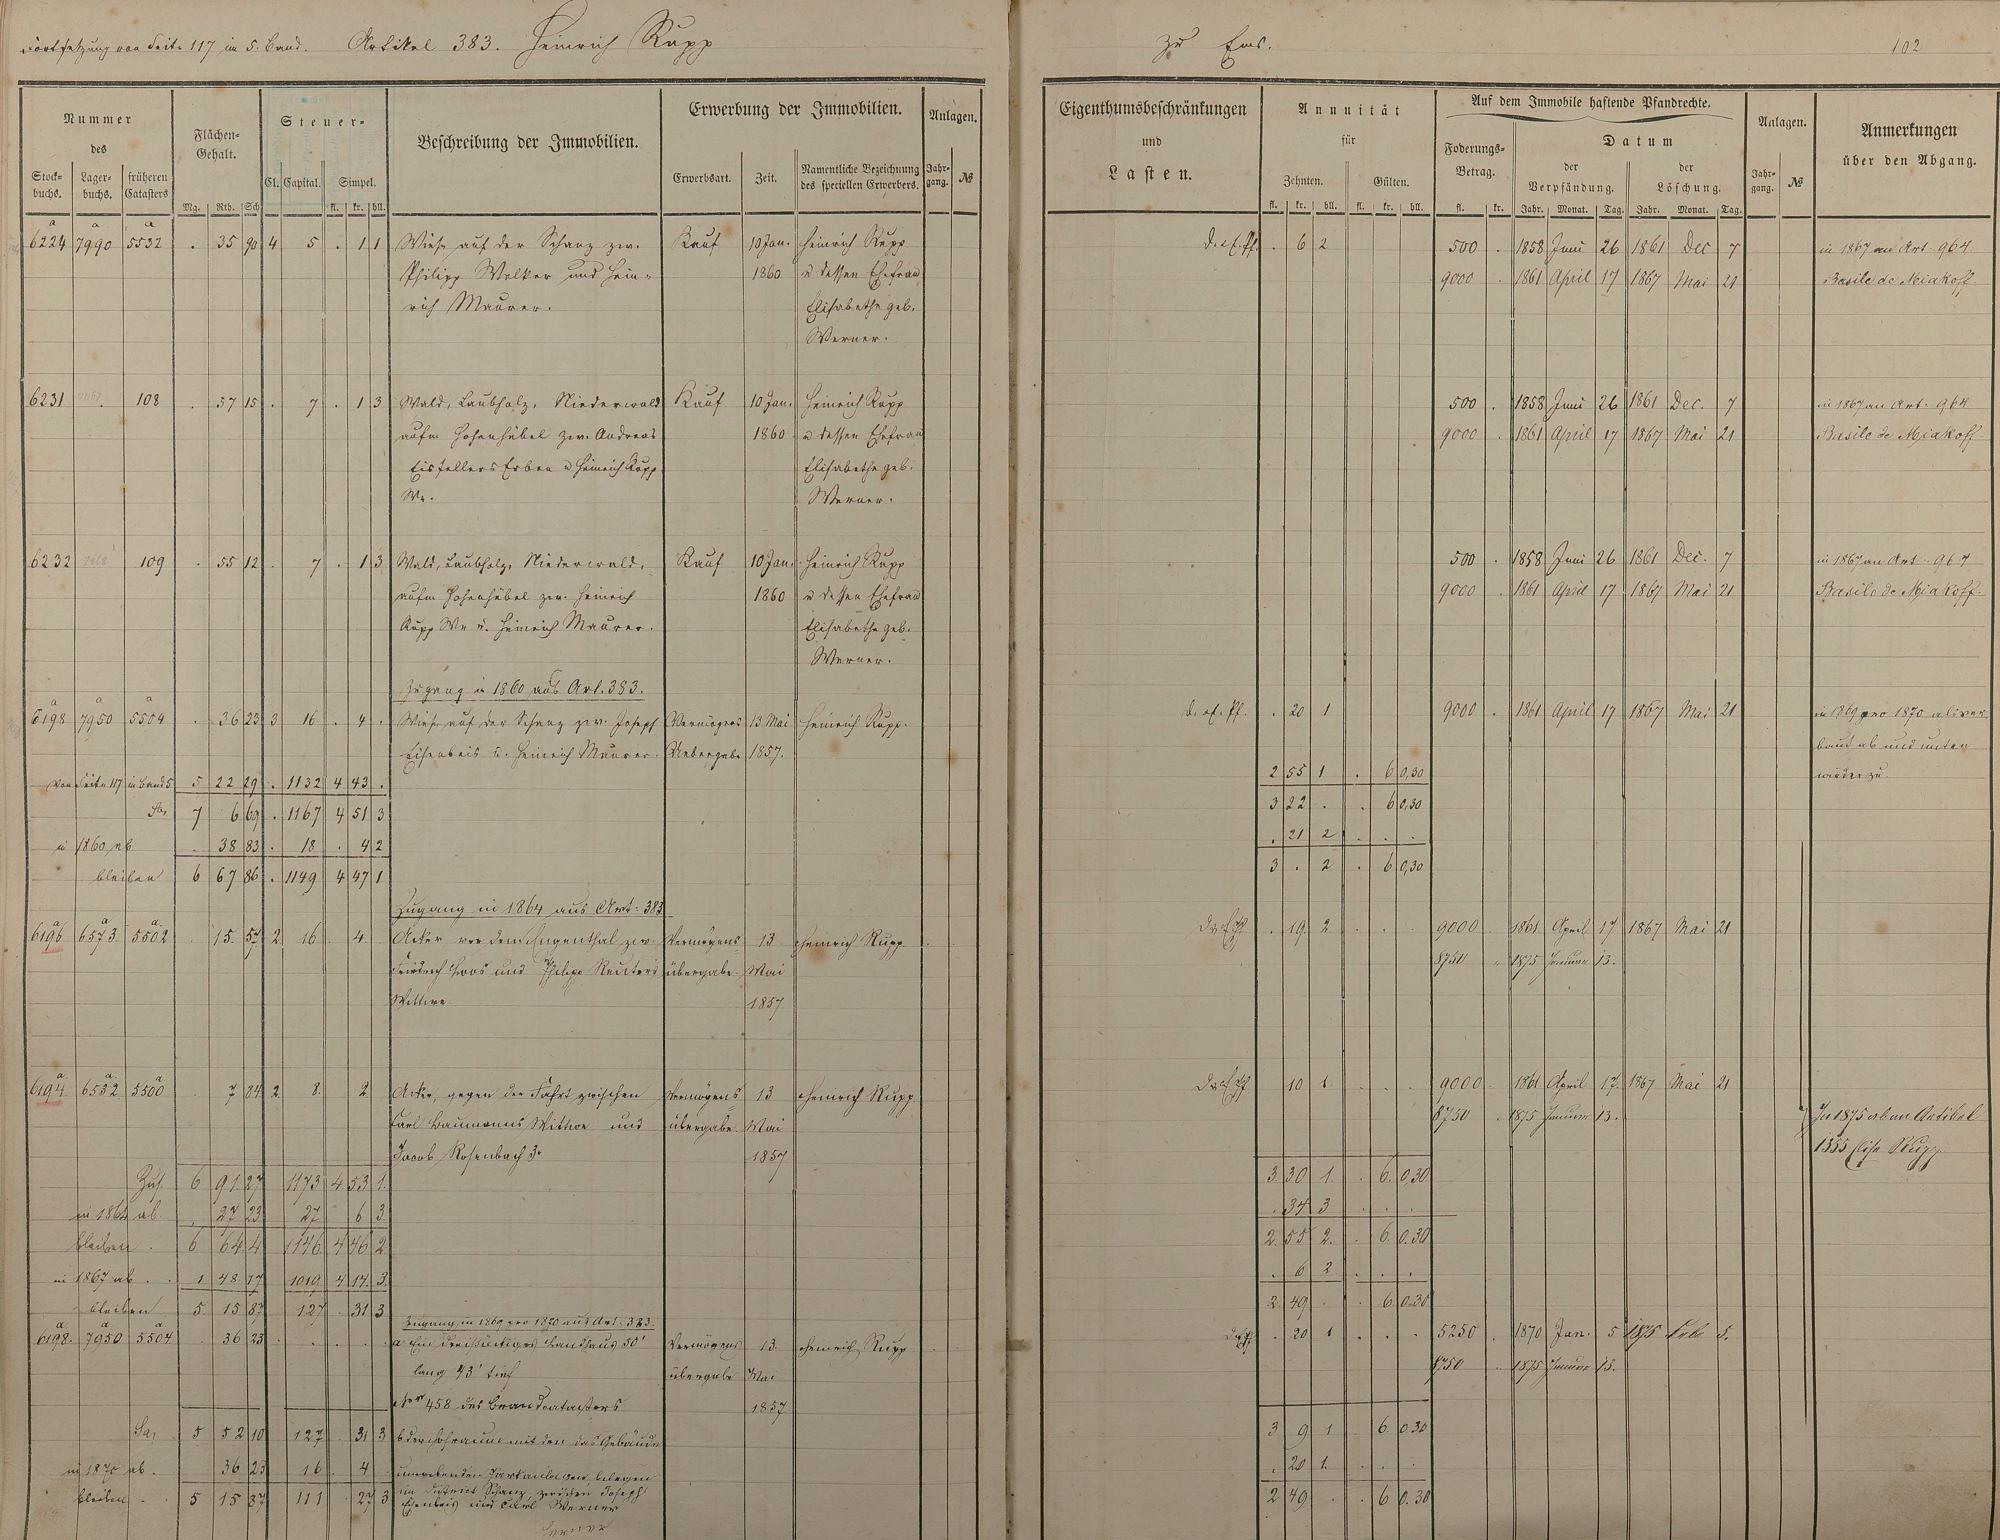 Fortsetzung von Seite 117 in 5. Band. Artikel 383. Heinrich Rupp zu Ems. 102
Nummer des
Stock-buchs. Lager-buchs. früheren Catasters
Flächen-Gehalt.
Mg. Rth. Sch.
Steuer-
Cl. Capital. Simpel.
fl. kr. hll.
Beschreibung der Immobilien.
Erwerbung der Immobilien.
Erwerbsart. Zeit. Namentliche Bezeichnung des speciellen Erwerbers.
Anlagen.
Jahr-gang. №
Eigenthumsbeschränkungen und Lasten.
Annuität für
Zehnten. Gülten.
fl. kr. hll. fl. kr. hll.
Auf dem Immobile haftende Pfandrechte.
Foderungs-Betrag.
fl. kr.
Datum
der Verpfändung. der Löschung.
Jahr. Monat. Tag. Jahr. Monat. Tag.
Anlagen.
Jahr-gang. №
Anmerkungen über den Abgang.
6224 a 7990 a 5532 a . 35 90 4 5 . 1 1 Wiese auf der Schanz zw. Kauf 10 Jan. Heinrich Rupp . 6 2 500 . 1858 Juni 26 1861 Dec 7 in 1867 an Art. 964
Philipp Welker und Hein- 1860 u dessen Ehefrau 9000 . 1861 April 17 1867 Mai 21 Basile de Miakoff
rich Maurer. Elisabetha geb.
Werner.
6231 108 . 57 15 . 7 . 1 3 Wald, Laubholz, Niederwald Kauf 10 Jan. Heinrich Rupp 500 . 1858 Juni 26 1861 Dec. 7 in 1867 an Art. 964
aufm Hohenhübel zw. Andreas 1860 u dessen Ehefrau 9000 1861 April 17 1867 Mai 21 Basile de Miakoff
Erben u Heinrich Rupp Elisabetha geb.
We. Werner.
6232 109 . 55 12 . 7 . 1 3 Wald, Laubholz, Niederwald, Kauf 10 Jan. Heinrich Rupp 500 . 1858 Juni 26 1861 Dec. 7 in 1867 an Art. 964
aufm Hohenhübel zw. Heinrich 1860 u dessen Ehefrau 9000 1861 April 17 1867 Mai 21 Basile de Miakoff.
Rupp We u. Heinrich Maurer. Elisabetha geb.
Werner.
Zugang in 1860 aus Art. 383.
6198 a 7950 a 5504 a . 36 23 3 16 . 4 . Wiese auf der Schanz zw. Joseph Vermögens 13 Mai Heinrich Rupp. . 20 1 9000 . 1861 April 17 1867 Mai 21 in 1869 pro 1870 als ver
Eisenbeis u. Heinrich Maurer. Uebergabe 1857. baut ab und unten
von Seite 117 in Band 5 5 22 29 . 1132 4 43 . 2 55 1 . 6 0,30 wieder zu
Sa. 7 6 69 . 1167 4 51 3 3 22 . . 6 0,30
in 1860 ab . 38 83 . 18 . 4 2 . 21 2 . . .
bleiben 6 67 86 . 1149 4 47 1 3 . 2 . 6 0,30
Zugang in 1864 aus Art: 383
6196 a 6573 a 5502 a . 15. 57 2 16 . 4. Acker vor dem zw. Vermögens 13 Heinrich Rupp . 19 2 . . . 9000 1861 April 17 1867 Mai 21
Friedrich Loos und Philipp Reuter's übergabe. Mai 8750 1875 Januar 13.
Wittwe 1857
6194 a 6532 a 5500 a . 7 84 2 8. 2 Acker, gegen der Fahrt zwischen Vermögens 13 Heinrich Rupp . 10 1 . . . 9000 1861 April 17. 1867 Mai 21
Carl Baumanns Wittwe und übergabe Mai 8750 1875 Januar 13. In 1875 ab an Artikel
Jacob Rosenbach 3r 1857 1355 Rupp
Zus. 6 91 27 1173 4 53 1. 3. 30 1. . 6. 0,30
in 1864 ab. . 27 23 27 6 3 . 34 3 . . .
bleiben . 6 64 4 1146 4 46 2 2. 55 2. . 6. 0.30
in 1867 ab . . 1 48 17 1019 4 14. 3 . 6 2 . . .
bleiben 5. 15 87 127 . 31 3 2. 49 . 6 0.30
Zugang in 1869 pro 1870 aus Art: 383.
6198. a 7950 a 5504 a . 36 23 . . . . . a Ein dreistöckiges Landhaus 50' Vermögens 13. Heinrich Rupp . 20 1 . . . 5250 . 1870 Jan. 5 1875 Febr 5.
lang 43' tief übergabe Mai 8750 1875 Januar 13.
Nro 458 des Brandcatasters 1857
Sa. 5 52 10 127 31 3 b der Hofraum mit den das Gebäude 3 9 1 6. 0.30
in 1870 ab. 36 23 16 . 4 umgebenden Parkanlagen belegen . 20 1. . . .
bleiben . 5 15 87 111 27 3 im District Schanz, zwischen Joseph 2 49 . . 6 0.30
Eisenbeis und Carl Werner